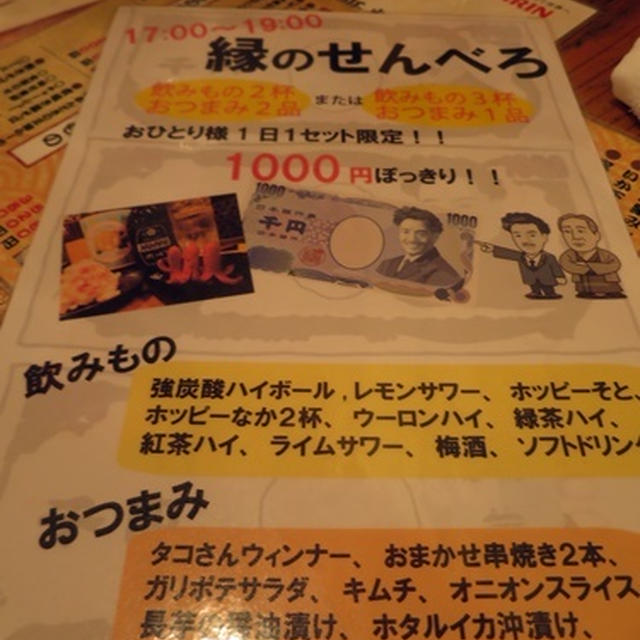 KIRIN
17:00〜19:00
縁のせんべろ
飲みもの2杯
おつまみ2品
または
飲みもの3杯
おつまみ1品
おひとり様1日1セット限定！！
1000円ぽっきり！！
1000
千円
1000
飲みもの
強炭酸ハイボール,レモンサワー、ホッピーそと、
ホッピーなか2杯、ウーロンハイ、緑茶ハイ、
紅茶ハイ、ライムサワー、梅酒、ソフトドリンク
おつまみ
タコさんウィンナー、おまかせ串焼き2本、
ガリポテサラダ、キムチ、オニオンスライス
長芋の醤油漬け、ホタルイカ沖漬け、